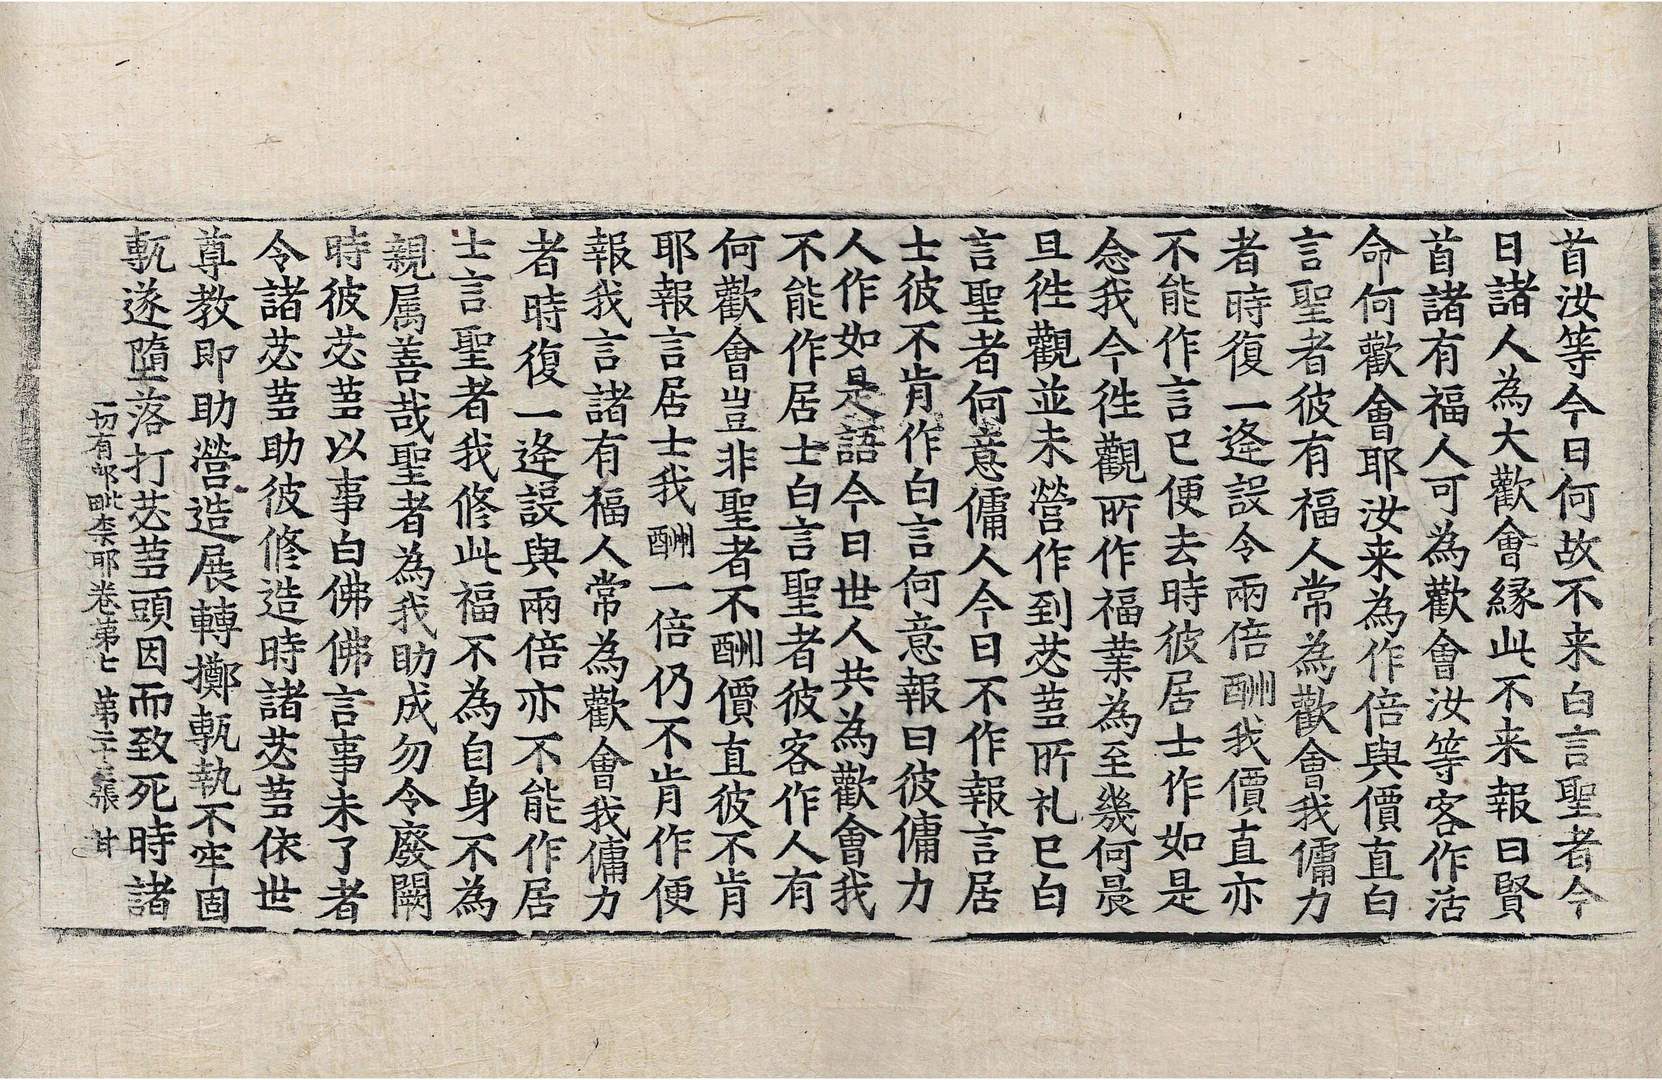 首汝等今日何故不来白言聖者今
日諸人為大歡會縁此不来報曰賢
首諸有福人可為歡會汝等客作活
命何歡會耶汝来為作倍與價直白
言聖者彼有福人常為歡會我傭力
者時復一逢設令兩倍酬我價直亦
不能作言已便去時彼居士作如是
念我今徃觀所作福業為至幾何晨
旦徃觀並未營作到苾芻所礼已白
言聖者何意傭人今日不作報言居
士彼不肯作白言何意報曰彼傭力
人作如是語今日世人共為歡會我
不能作居士白言聖者彼客作人有
何歡會豈非聖者不酬價直彼不肯
耶報言居士我酬一倍仍不肯作便
報我言諸有福人常為歡會我傭力
者時復一逢設與兩倍亦不能作居
士言聖者我修此福不為自身不為
親属善哉聖者為我助成勿令廢闕
時彼苾芻以事白佛佛言事未了者
令諸苾芻助彼修造時諸苾芻依世
尊教即助營造展轉擲甎執不牢固
甎遂墮落打苾芻頭因而致死時諸
一切有部毗柰耶卷苐七 苐二十三張 甘